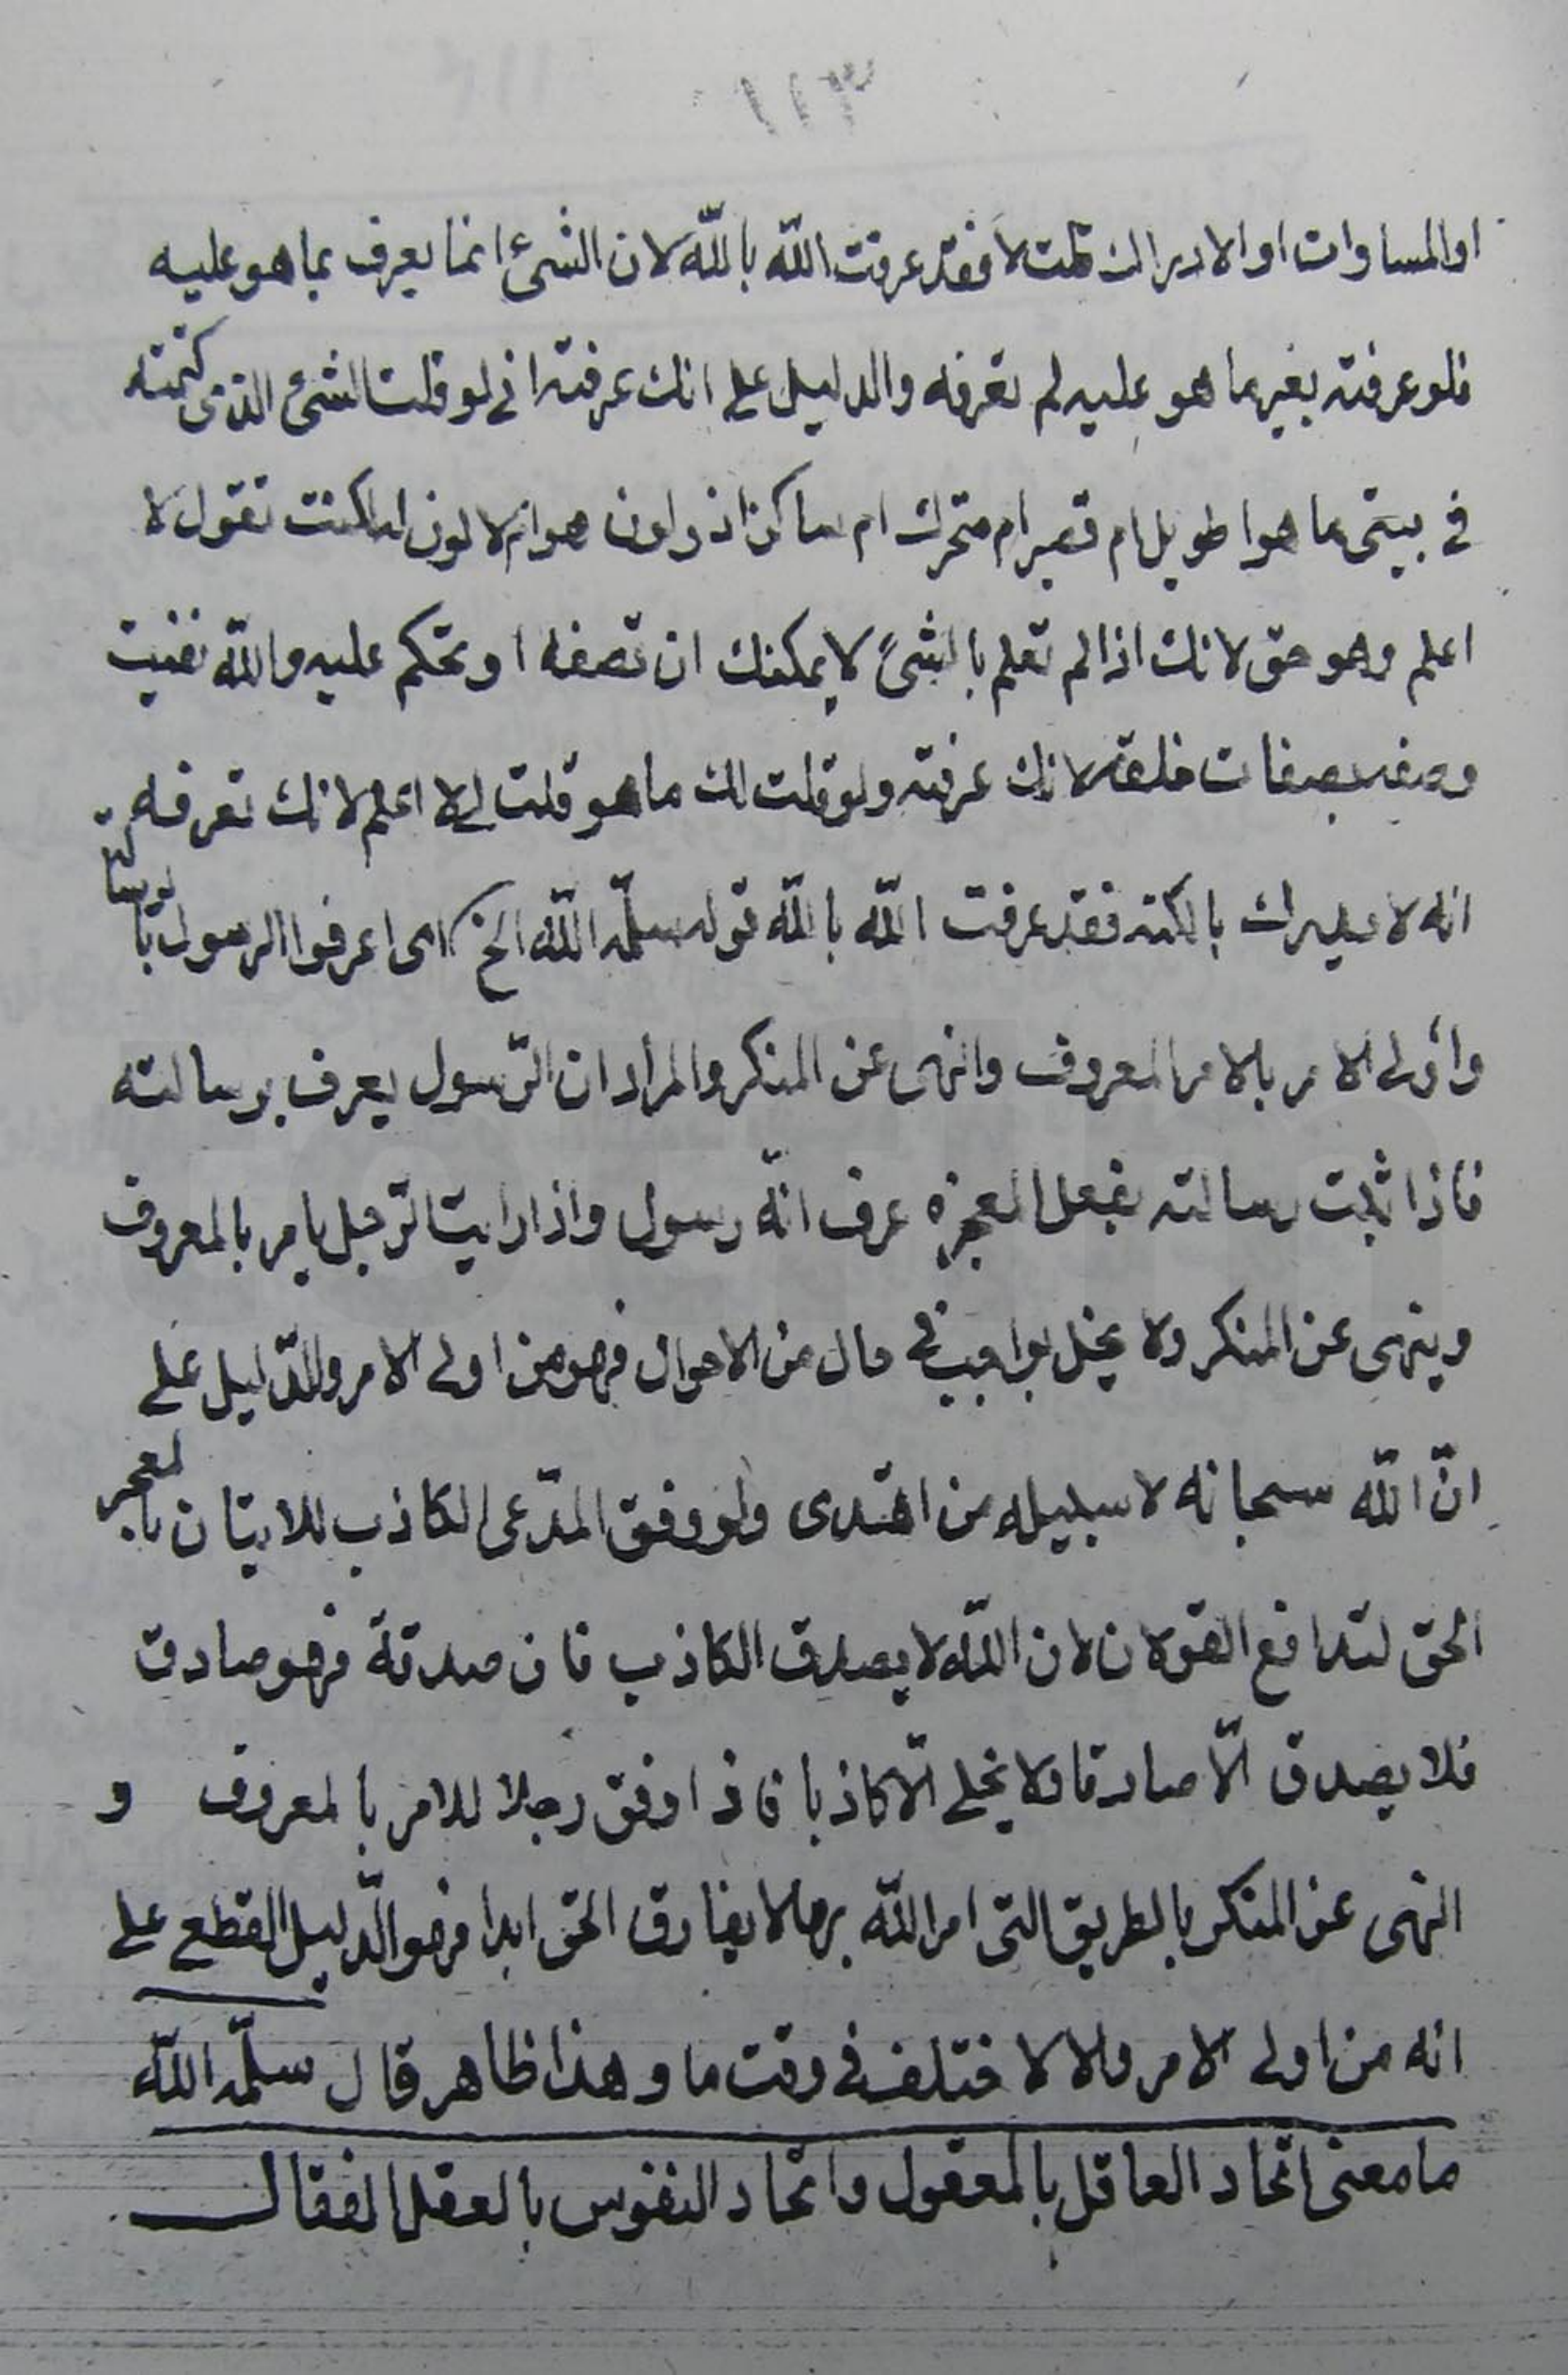 ١١٣
او المساوات او الادراك قلت لا فقد عرفت اللّه باللّه لان الشئ انما يعرف بما هو عليه
فلو عرفته بغير ما هو عليه لم تعرفه والدليل على انك عرفته انى لو قلت الشئ الذى كتمته
فى بيتى ما هو اطويل ام قصير ام متحرك ام ساكن اذ ولون هو ام لا لون له لكنت تقول لا
اعلم وهو حق لانك اذا لم تعلم بالشئ لا يمكنك ان تصفه او تحكم عليه واللّه نفيت
وصفه بصفات خلقه لانك عرفته ولو قلت لك ما هو قلت لى لا اعلم لانك تعرفه من
انه لا يدرك بالكنه فقد عرفت اللّه باللّه قوله سلّمه اللّه الخ اى اعرفوا الرسول بالرسالة
واولى الامر بالامر المعروف والنهى عن المنكر والمراد ان الرّسول يعرف برسالته
فاذا ثبت رسالته بفعل المعجزه عرف انّه رسول واذا رايت الرّجل يامر بالمعروف
وينهى عن المنكر ولا يخل بواجب فى حال من الاحوال فهو من اولى الامر والدّليل على
انّ اللّه سبحانه لا سبيله من اهتدى ولو وفق المدّعى الكاذب للاتيان بالمعجز
الحق لتدافع القولان لان اللّه لا يصدق الكاذب فان صدقة فهو صادق
فلا يصدق الّا صادقا ولا يخلى الّا كاذبا فاذا وفق رجلا للامر بالمعروف و
النهى عن المنكر بالطريق التى امر اللّه بها لا يفارق الحق ابدا فهو الدّليل القطع على
انه من اولى الامر والا لاختلف فى وقت ما وهذا ظاهر قال سلّمه اللّه
ما معنى اتحاد العاقل بالمعقول واتحاد النفوس بالعقل الفعّال